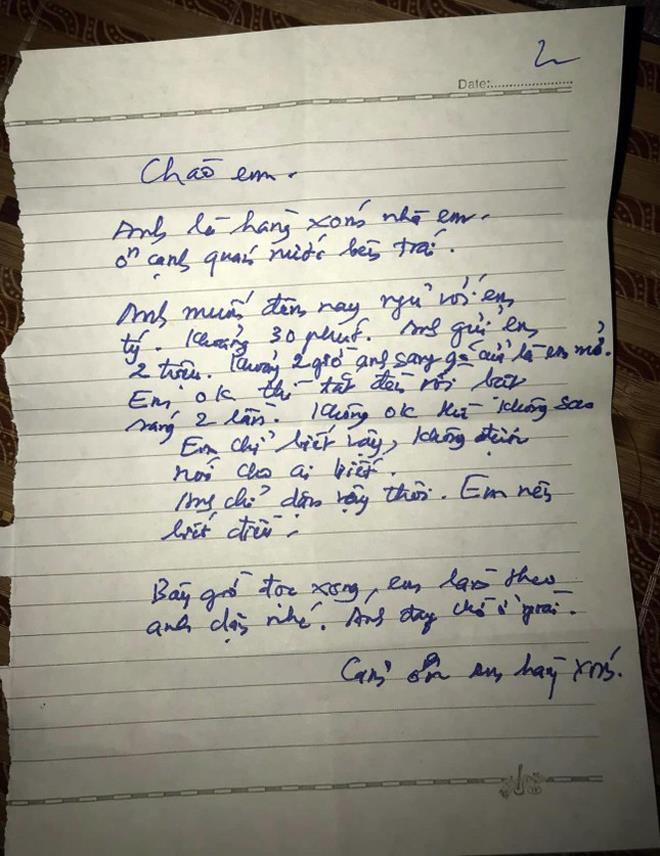 Date:
Chào em.
Anh là hàng xóm nhà em.
ở cạnh quán nước bên trái.
Anh muốn đêm nay ngủ với em
tý. Khoảng 30 phút. Anh gửi em
2 triệu. Khoảng 2 giờ anh sang gõ cửa là em mở.
Em ok thì tắt đèn rồi bật
sáng 2 lần. Không ok thì không sao
Em chỉ biết vậy, không được
nói cho ai biết.
Anh chỉ dặn vậy thôi. Em nên
biết điều.
Bây giờ đọc xong, em làm theo
anh dặn nhé. Anh đang chờ ở
Cảm ơn em hàng xóm.